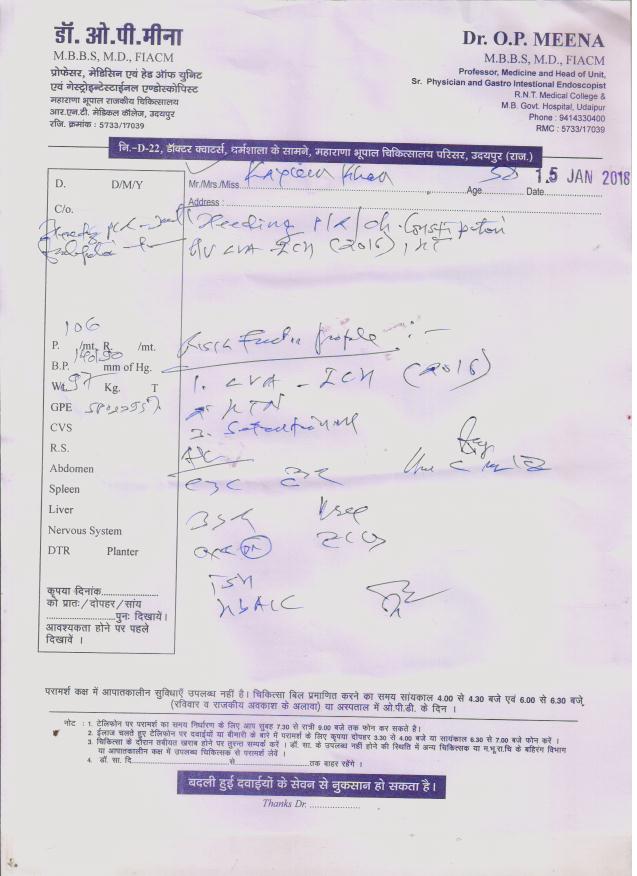 डॉ. ओ.पी.मीना
M.B.B.S, M.D., FIACM
प्रोफेसर, मेडिसिन एवं हेड ऑफ युनिट
एवं गेस्ट्रोइन्टेस्टाईनल एण्डोस्कोपिस्ट
महाराणा भूपाल राजकीय चिकित्सालय
आर.एन.टी. मेडिकल कॉलेज, उदयपुर
रजि. क्रमांक : 5733/17039
Dr. O.P. MEENA
M.B.B.S, M.D., FIACM
Professor, Medicine and Head of Unit,
Sr. Physician and Gastro Intestional Endoscopist
R.N.T. Medical College &
M.B. Govt. Hospital, Udaipur
Phone : 9414330400
RMC : 5733/17039
नि.–D-22, डॉक्टर क्वाटर्स, धर्मशाला के सामने, महाराणा भूपाल चिकित्सालय परिसर, उदयपुर (राज.)
D. D/M/Y
Mr./Mrs./Miss Khan Age Date 15 JAN 2018
Address :
C/o.
Bleeding P/R / ch. Constipation
CVA - ICH (2015), HT
106
P. /mt. R. /mt.
Risk Factor profile :-
B.P. 140/90 mm of Hg.
Wt. 97 Kg. T
1. CVA - ICH (2015)
GPE
2. HTN
CVS
3.
R.S.
Abdomen
Spleen
CBC
Liver
Nervous System
DTR Planter
TSH
HbA1C
कृपया दिनांक
को प्रातः/दोपहर/सांय
पुनः दिखायें।
आवश्यकता होने पर पहले
दिखावें ।
परामर्श कक्ष में आपातकालीन सुविधाएँ उपलब्ध नहीं है। चिकित्सा बिल प्रमाणित करने का समय सांयकाल 4.00 से 4.30 बजे एवं 6.00 से 6.30 बजे
(रविवार व राजकीय अवकाश के अलावा) या अस्पताल में ओ.पी.डी. के दिन ।
नोट : 1. टेलिफोन पर परामर्श का समय निर्धारण के लिए आप सुबह 7.30 से रात्री 9.00 बजे तक फोन कर सकते है।
2. ईलाज चलते हुए टेलिफोन पर दवाईयों या बीमारी के बारे में परामर्श के लिए कृपया दोपहर 3.30 से 4.00 बजे या सायंकाल 6.30 से 7.00 बजे फोन करें ।
3. चिकित्सा के दौरान तबीयत खराब होने पर तुरन्त सम्पर्क करें । डॉ. सा. के उपलब्ध नहीं होने की स्थिति में अन्य चिकित्सक या म.भू.रा.चि के बहिरंग विभाग
या आपातकालीन कक्ष में उपलब्ध चिकित्सक से परामर्श लेवें ।
4. डॉ. सा. दि. से तक बाहर रहेंगे ।
बदली हुई दवाईयों के सेवन से नुकसान हो सकता है।
Thanks Dr.